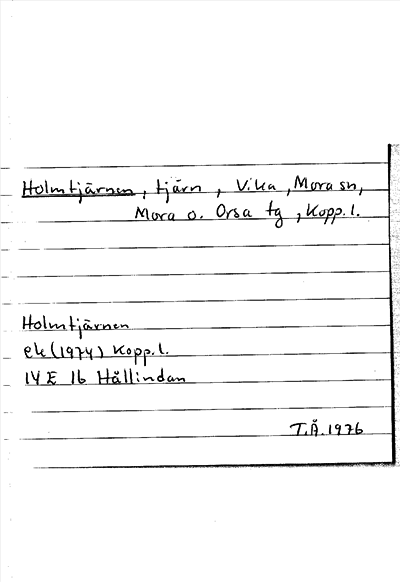 Holmtjärnen, tjärn, Vika, Mora sn,
Mora o. Orsa tg, Kopp. l.
Holmtjärnen
ek (1974) Kopp. l.
14 E 1b Hällindan
T.Å. 1976